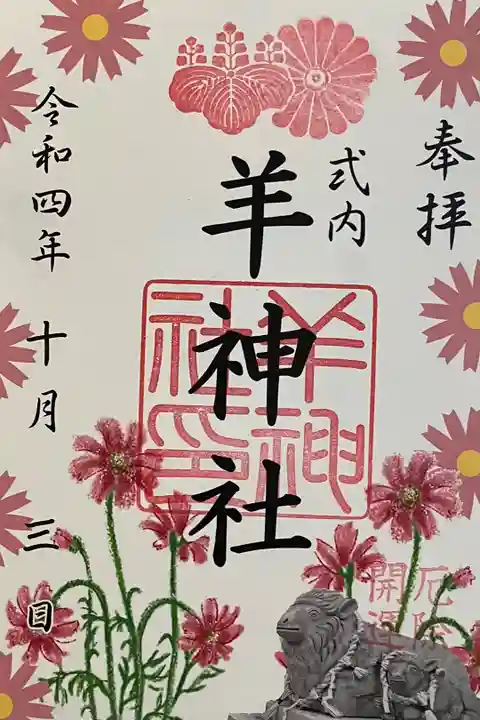 奉拝
式内
羊神社
羊神社印
令和四年 十月 三日
厄除
開運